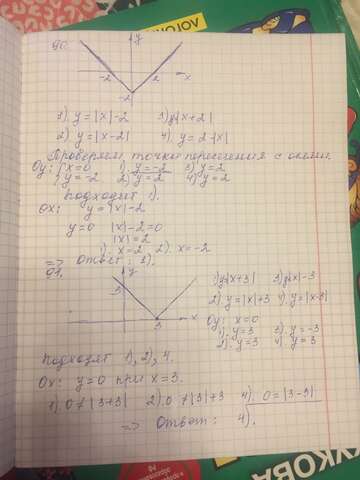 ЛОГО
90.
y
-2 2 x
-2
1) y = |x| - 2 3) y = |x + 2|
2) y = |x - 2| 4) y = 2 - |x|
Проверяем точки пересечения с осями.
Oy: { x = 0 1) y = -2 3) y = 2
{ y = -2 2) y = 2 4) y = 2
Подходит 1).
Ox: y = |x| - 2
y = 0 |x| - 2 = 0
|x| = 2
1). x = 2 2). x = -2
=> Ответ: 1).
91.
y
3
3 x
1) y = |x + 3| 3) y = |x| - 3
2) y = |x| + 3 4) y = |x - 3|
Oy: x = 0
1). y = 3 3). y = -3
2). y = 3 4) y = 3
Подходят 1), 2), 4.
Ox: y = 0 при x = 3.
1) 0 ≠ |3 + 3| 2) 0 ≠ |3| + 3 4) 0 = |3 - 3|
=> Ответ: 4).
УКОВА